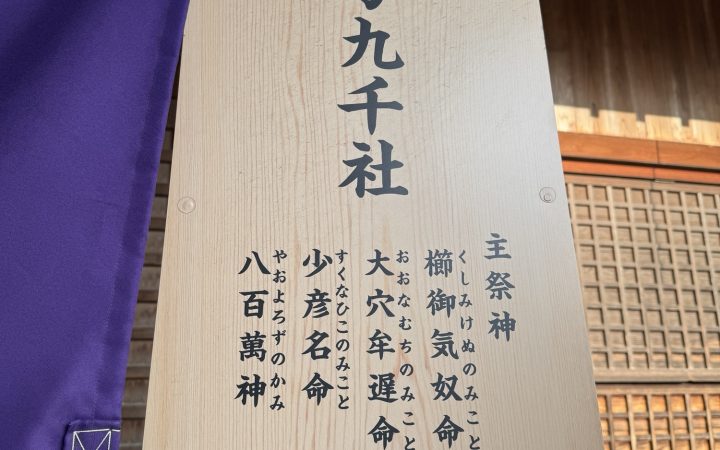 九千社
主祭神
くしみけぬのみこと
櫛御気奴命
おおなむちのみこと
大穴牟遅命
すくなひこのみこと
少彦名命
やおよろずのかみ
八百萬神